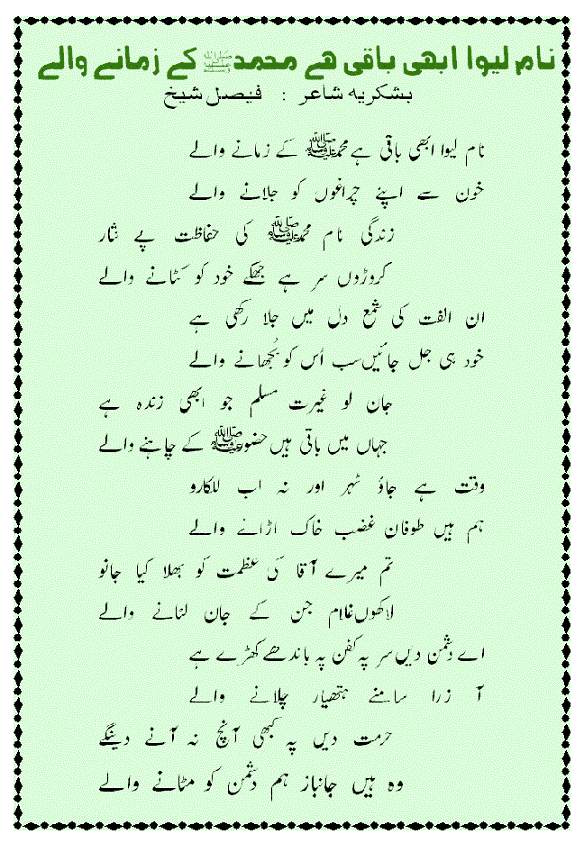 نام لیوا ابھی باقی ھے محمدﷺ کے زمانے والے
بشکریہ شاعر : فیصل شیخ
نام لیوا ابھی باقی ہے محمدﷺ کے زمانے والے
خون سے اپنے چراغوں کو جلانے والے
زندگی نام محمدﷺ کی حفاظت پے نثار
کروڑوں سر ہے جھکے خود کو کٹانے والے
ان الفت کی شمع دل میں جلا رکھی ہے
خود ہی جل جائیں سب اُس کو بُجھانے والے
جان لو غیرت مسلم جو ابھی زندہ ہے
جہاں میں باتی ہیں حضورﷺ کے چاہنے والے
وقت ہے جاؤ ٹہر اور نہ اب للکارو
ہم ہیں طوفان غضب خاک اڑانے والے
تم میرے آقا کی عظمت کو بھلا کیا جانو
لاکھوں غلام جن کے جان لٹانے والے
اے دشمن دیں سر پہ کفن پہ باندھے کھڑے ہے
آ زرا سامنے ہتھیار چلانے والے
حرمت دیں پہ کبھی آنچ نہ آنے دینگے
وہ ہیں جانباز ہم دشمن کو مٹانے والے